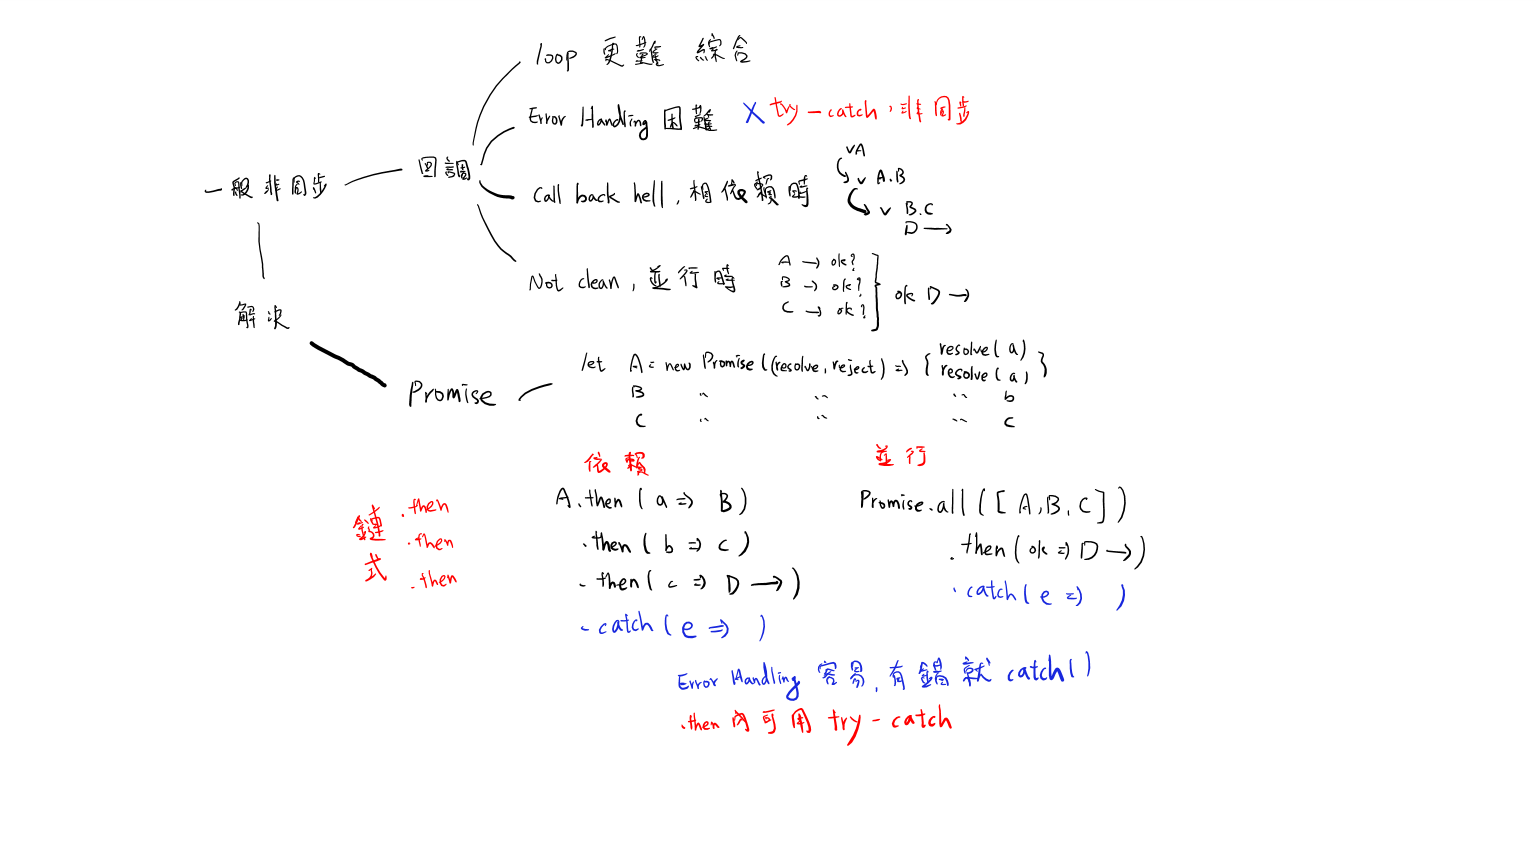 loop 更難 綜合
Error Handling 困難 X try-catch,非同步
一般非同步 回調
Call back hell, 相依賴時
vA
v A.B
v B.C
D→
Not clean, 並行時
A → ok?
B → ok?
C → ok?
ok D →
解決
Promise
let A = new Promise((resolve, reject) => { resolve(a)
resolve(a) }
B 〃 〃 〃 b
C 〃 〃 〃 c
依賴
並行
鏈式
.then
.then
.then
A.then(a => B)
.then(b => C)
.then(c => D →)
.catch(e => )
Promise.all([A,B,C])
.then(ok => D →)
.catch(e => )
Error Handling 容易,有錯就 catch()
.then 內可用 try-catch